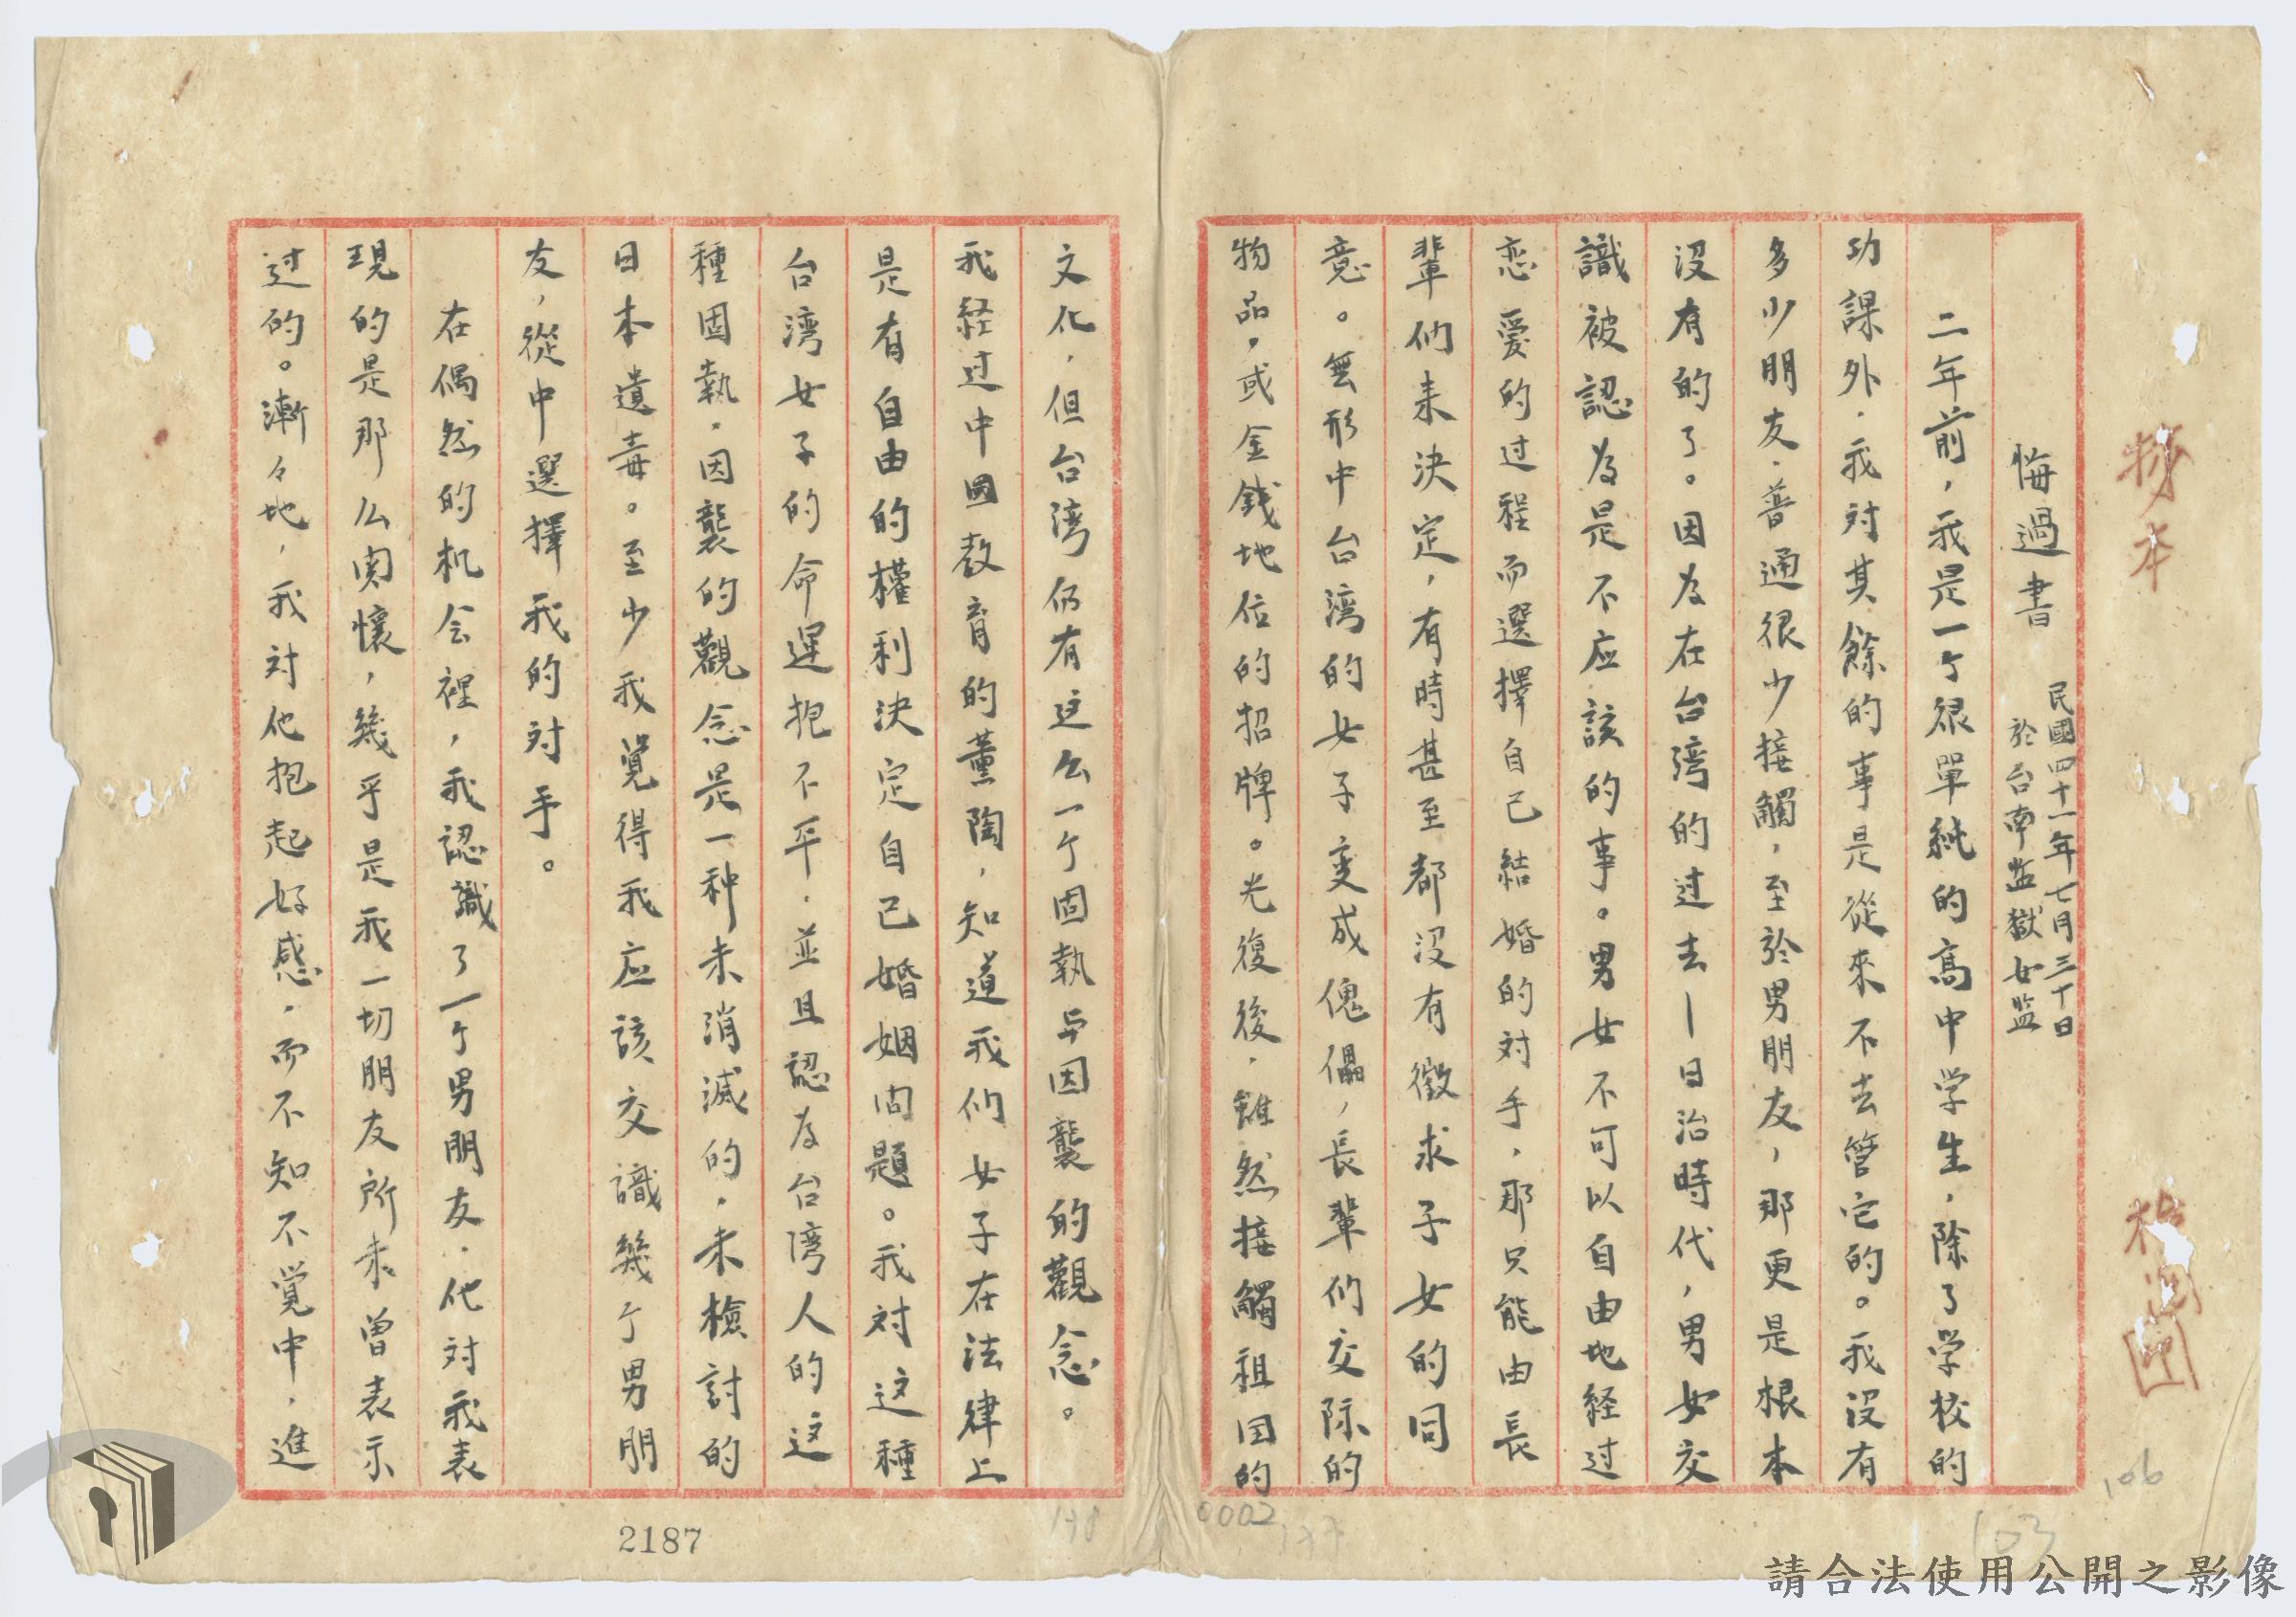 抄本
悔過書
民國四十一年七月三十日
於台南监獄女监
二年前，我是一个很單純的高中学生，除了学校的
功課外．我対其餘的事是從來不去管它的。我没有
多少朋友．普通很少接觸，至於男朋友，那更是根本
没有的了。因为在台湾的过去—日治時代，男女交
識被認为是不应該的事。男女不可以自由地経过
恋爱的过程而選擇自己結婚的対手，那只能由長
輩们来決定，有時甚至都没有徵求子女的同
意。無形中台湾的女子变成傀儡，長輩们交际的
物品，或金錢地位的招牌。光復後，雖然接觸祖国的
文化，但台湾仍有这么一个固執与因襲的觀念。
我経过中國教育的薰陶，知道我们女子在法律上
是有自由的權利決定自己婚姻问題。我対这種
台湾女子的命運抱不平．並且認为台湾人的这
種固執．因襲的觀念是一种未消滅的，未檢討的
日本遺毒。至少我覚得我应該交識幾个男朋
友，從中選擇我的対手。
在偶然的机会裡，我認識了一个男朋友．他対我表
現的是那么関懷，幾乎是我一切朋友所未曾表示
过的。漸々地，我対他抱起好感，而不知不覚中，進
106
103
0002
177
178
2187
請合法使用公開之影像